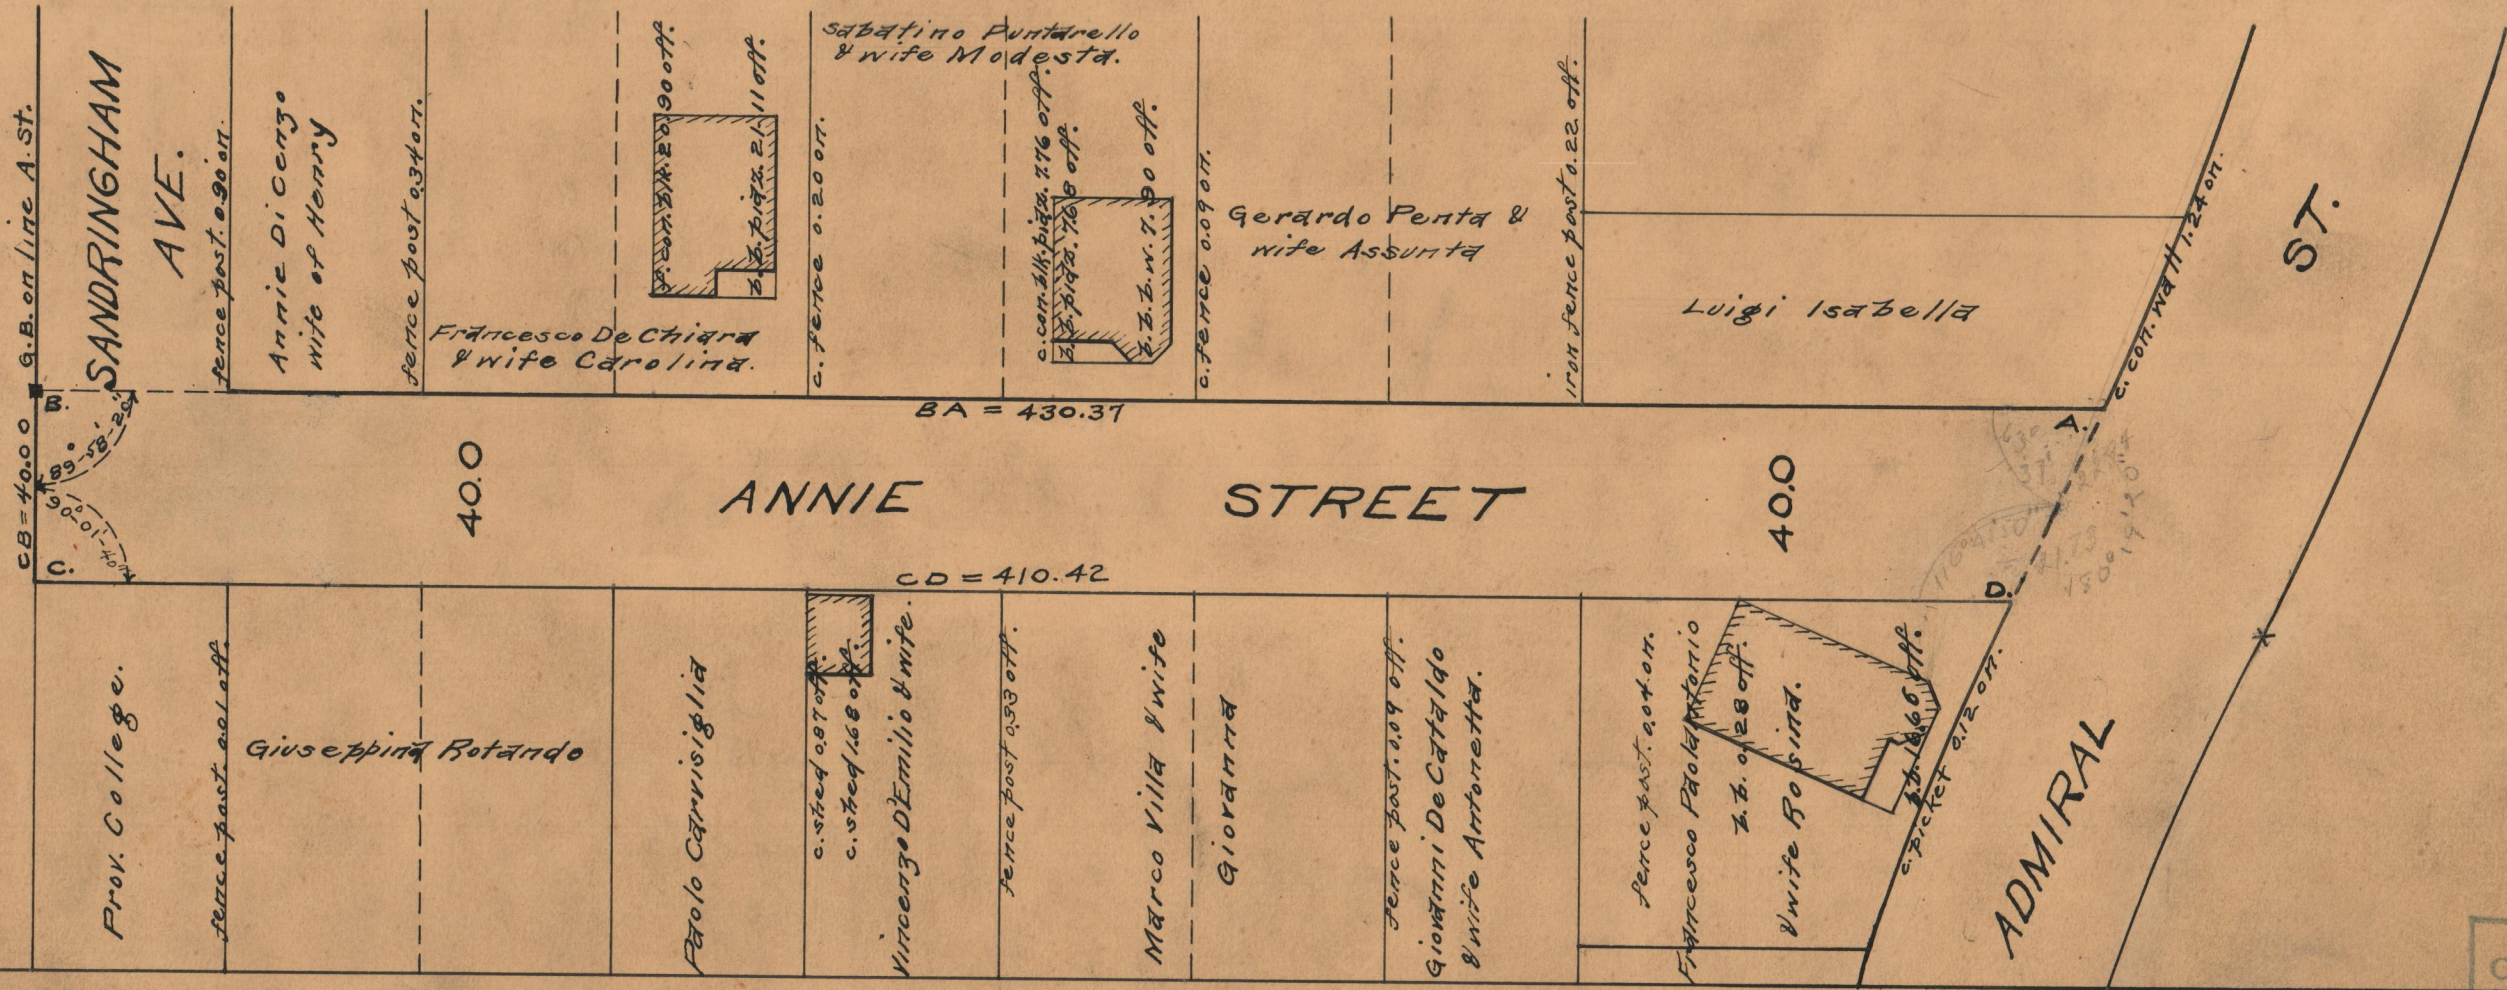 G.B. on line A. St.
SANDRINGHAM
AVE.
fence post. 0.90 on.
Annie DiCenzo
wife of Henry
fence post 0.34 on.
Francesco DeChiara
& wife Carolina.
f. con. blk. 20.90 off.
b. b. piaz. 21.11 off.
c. fence 0.20 on.
Sabatino Puntarello
& wife Modesta.
c. con. blk. piaz. 7.76 off.
b. b. piaz. 7.68 off.
b. b. b. w. 7.90 off.
c. fence 0.09 on.
Gerardo Penta &
wife Assunta
iron fence post 0.22 off.
Luigi Isabella
c. con. wall 1.24 on.
ST.
B.
BA = 430.37
A.
CB = 40.00
89°-58'-20"
90°-01'-40"
40.0
ANNIE STREET
40.0
63°
37'
C.
CD = 410.42
D.
41.73
180° 19' 20"
Prov. College.
fence post. 0.01 off.
Giuseppina Rotando
Paolo Carvisiglia
c. shed 0.87 off.
c. shed 1.68 off.
Vincenzo D'Emilio & wife.
fence post 0.33 off.
Marco Villa & wife
Giovanna
fence post. 0.09 off.
Giovanni DeCataldo
& wife Antonetta.
fence post. 0.04 on.
Francesco Paolantonio
b. b. 0.28 off.
& wife Rosina.
b. b. 16.66 off.
c. picket 0.12 on.
ADMIRAL